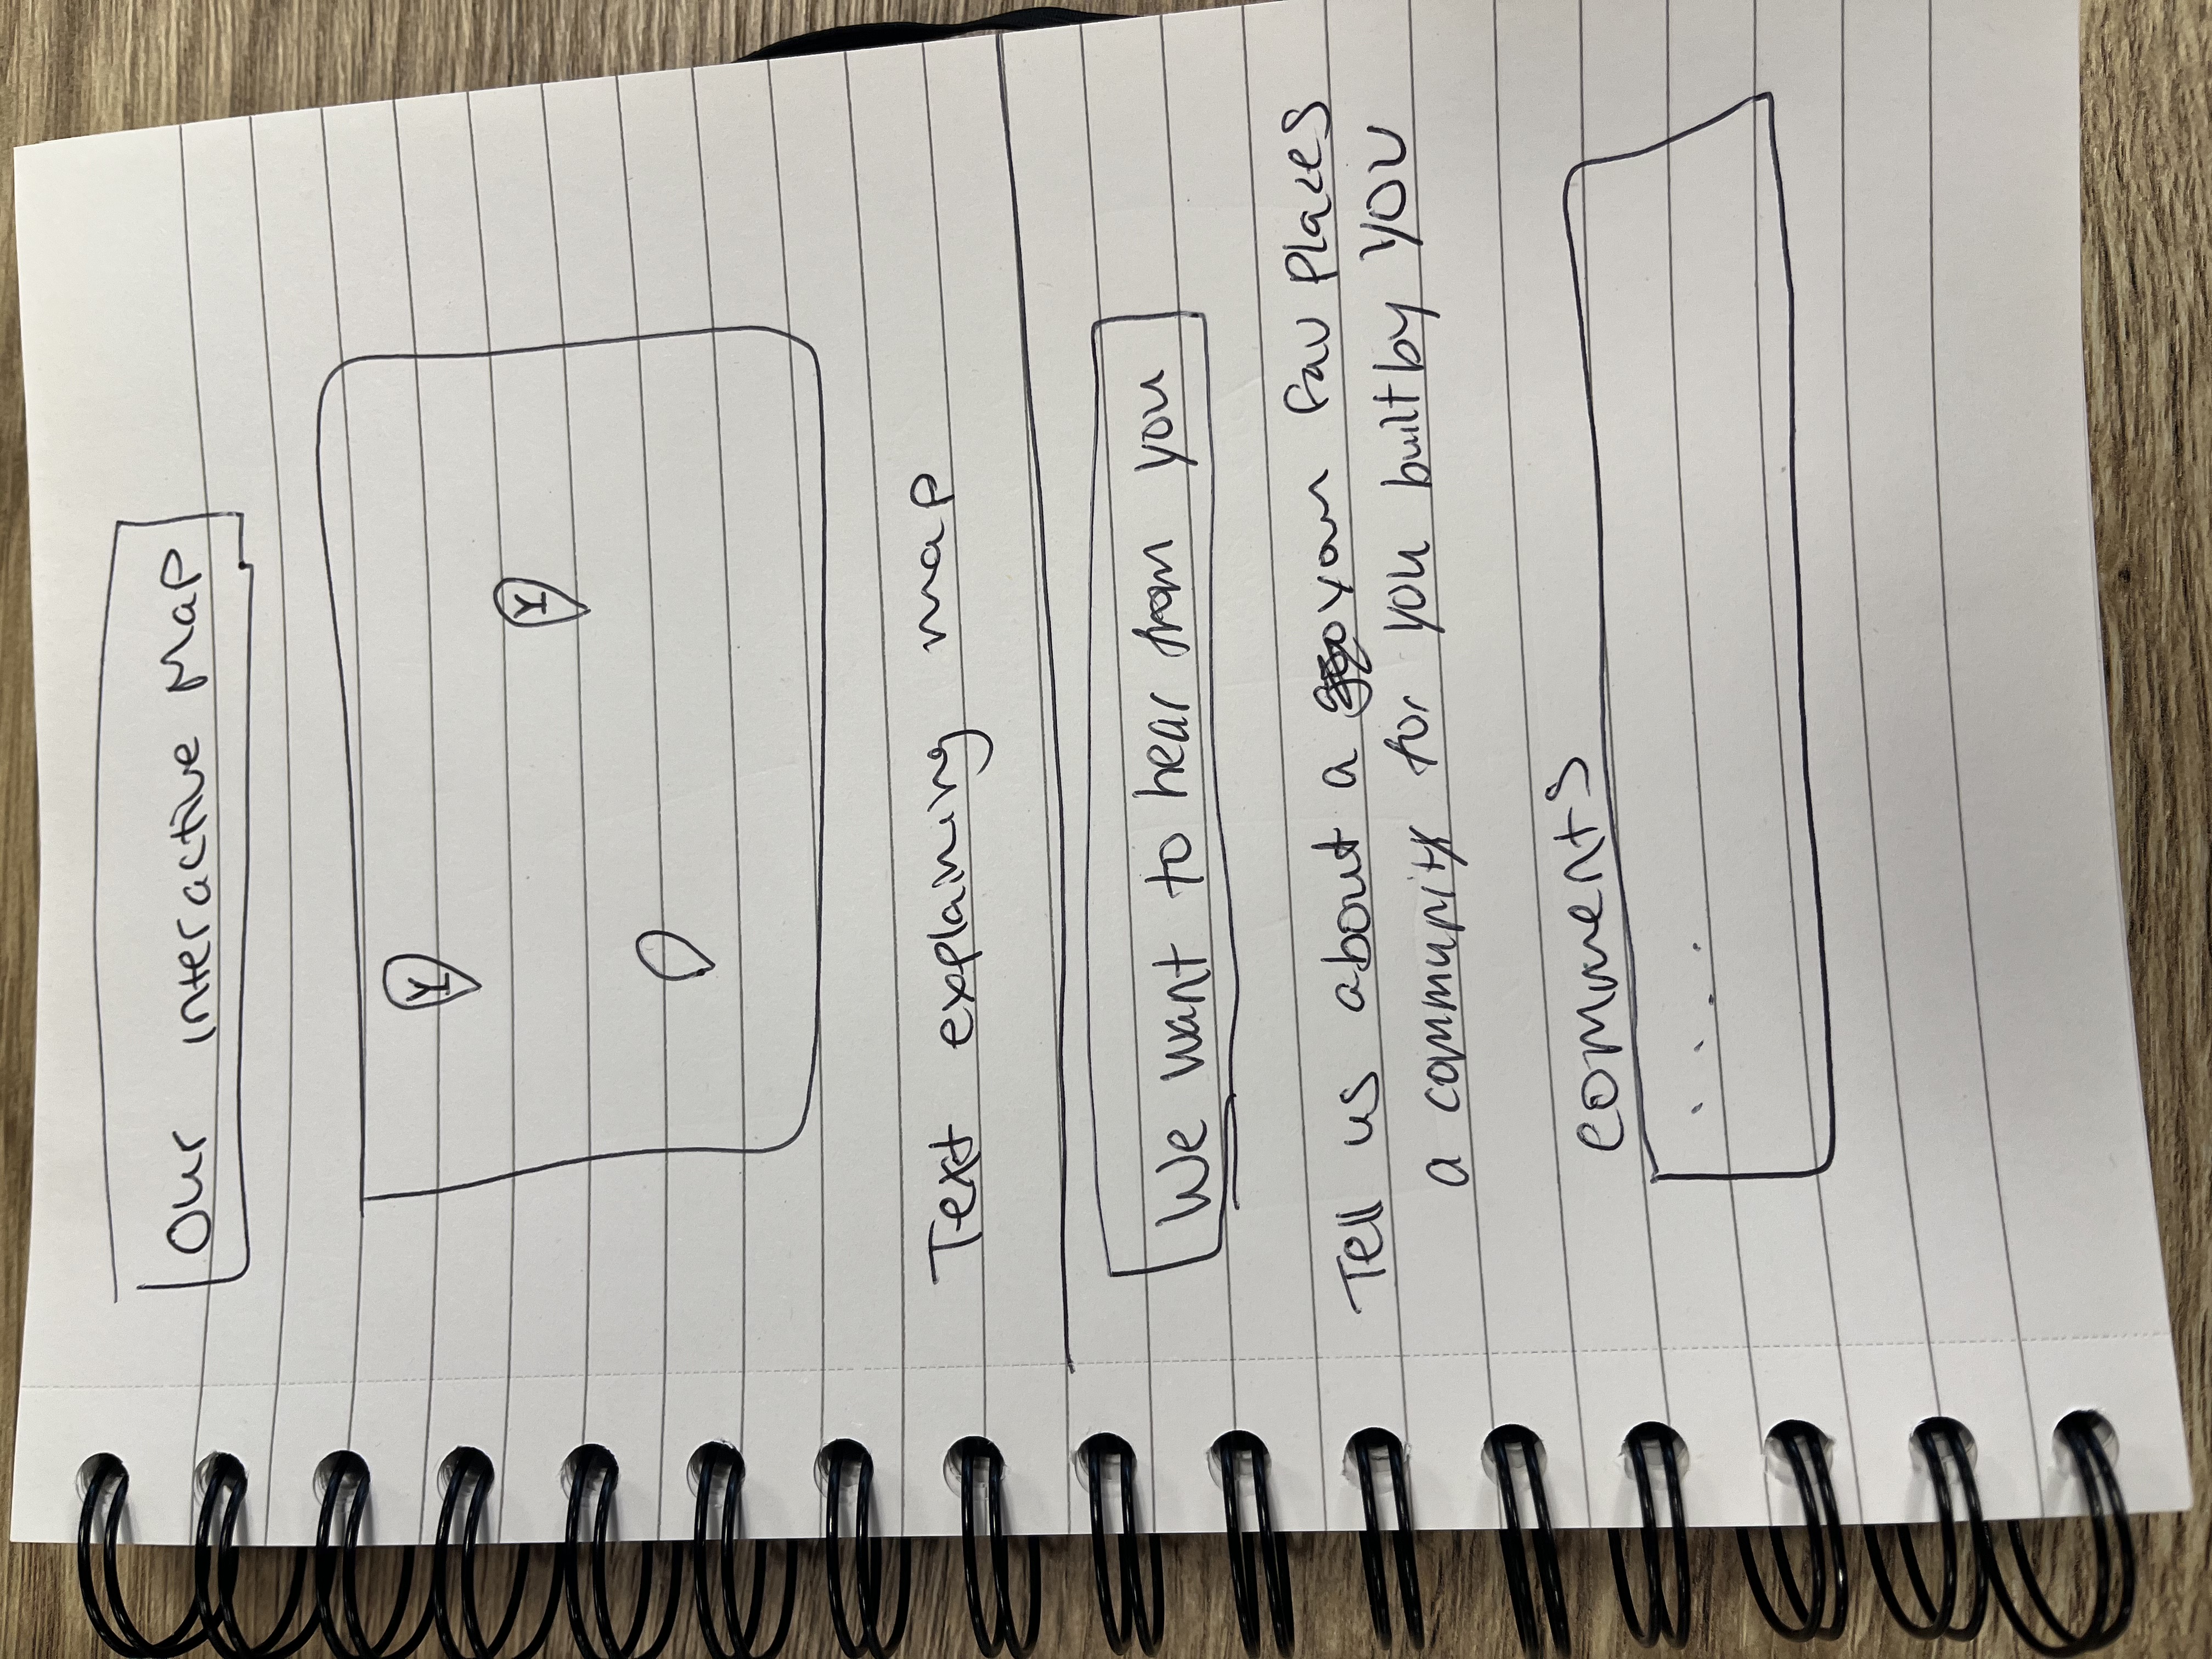 Our interactive Map
Y
Y
Text explaining map
We want to hear from you
Tell us about a your fav places
a community for you built by YOU
comments
....